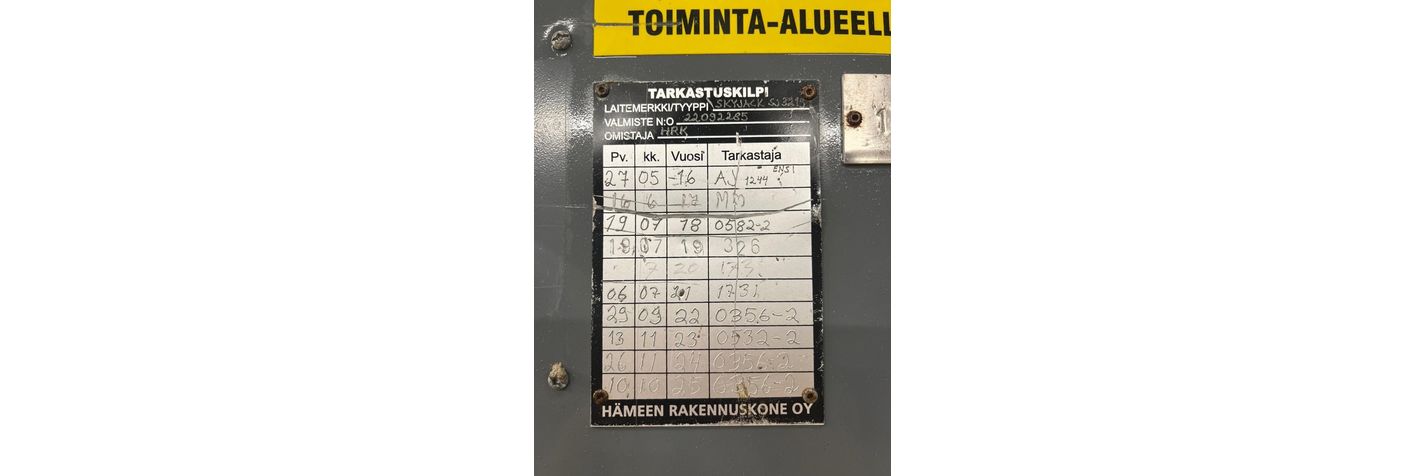 TOIMINTA-ALUEELL
TARKASTUSKILPI
LAITEMERKKI/TYYPPI SKYJACK SJ3219
VALMISTE N:O 22092285
OMISTAJA HRK
Pv. kk. Vuosi Tarkastaja
27 05 -16 AJ 1244 ENSI
16 6 17 MM
19 07 18 0582-2
19 07 19 326
7 20 173
06 07 21 1731
29 09 22 0356-2
13 11 23 0532-2
26 11 24 0356-2
10 10 25 0356-2
HÄMEEN RAKENNUSKONE OY
1